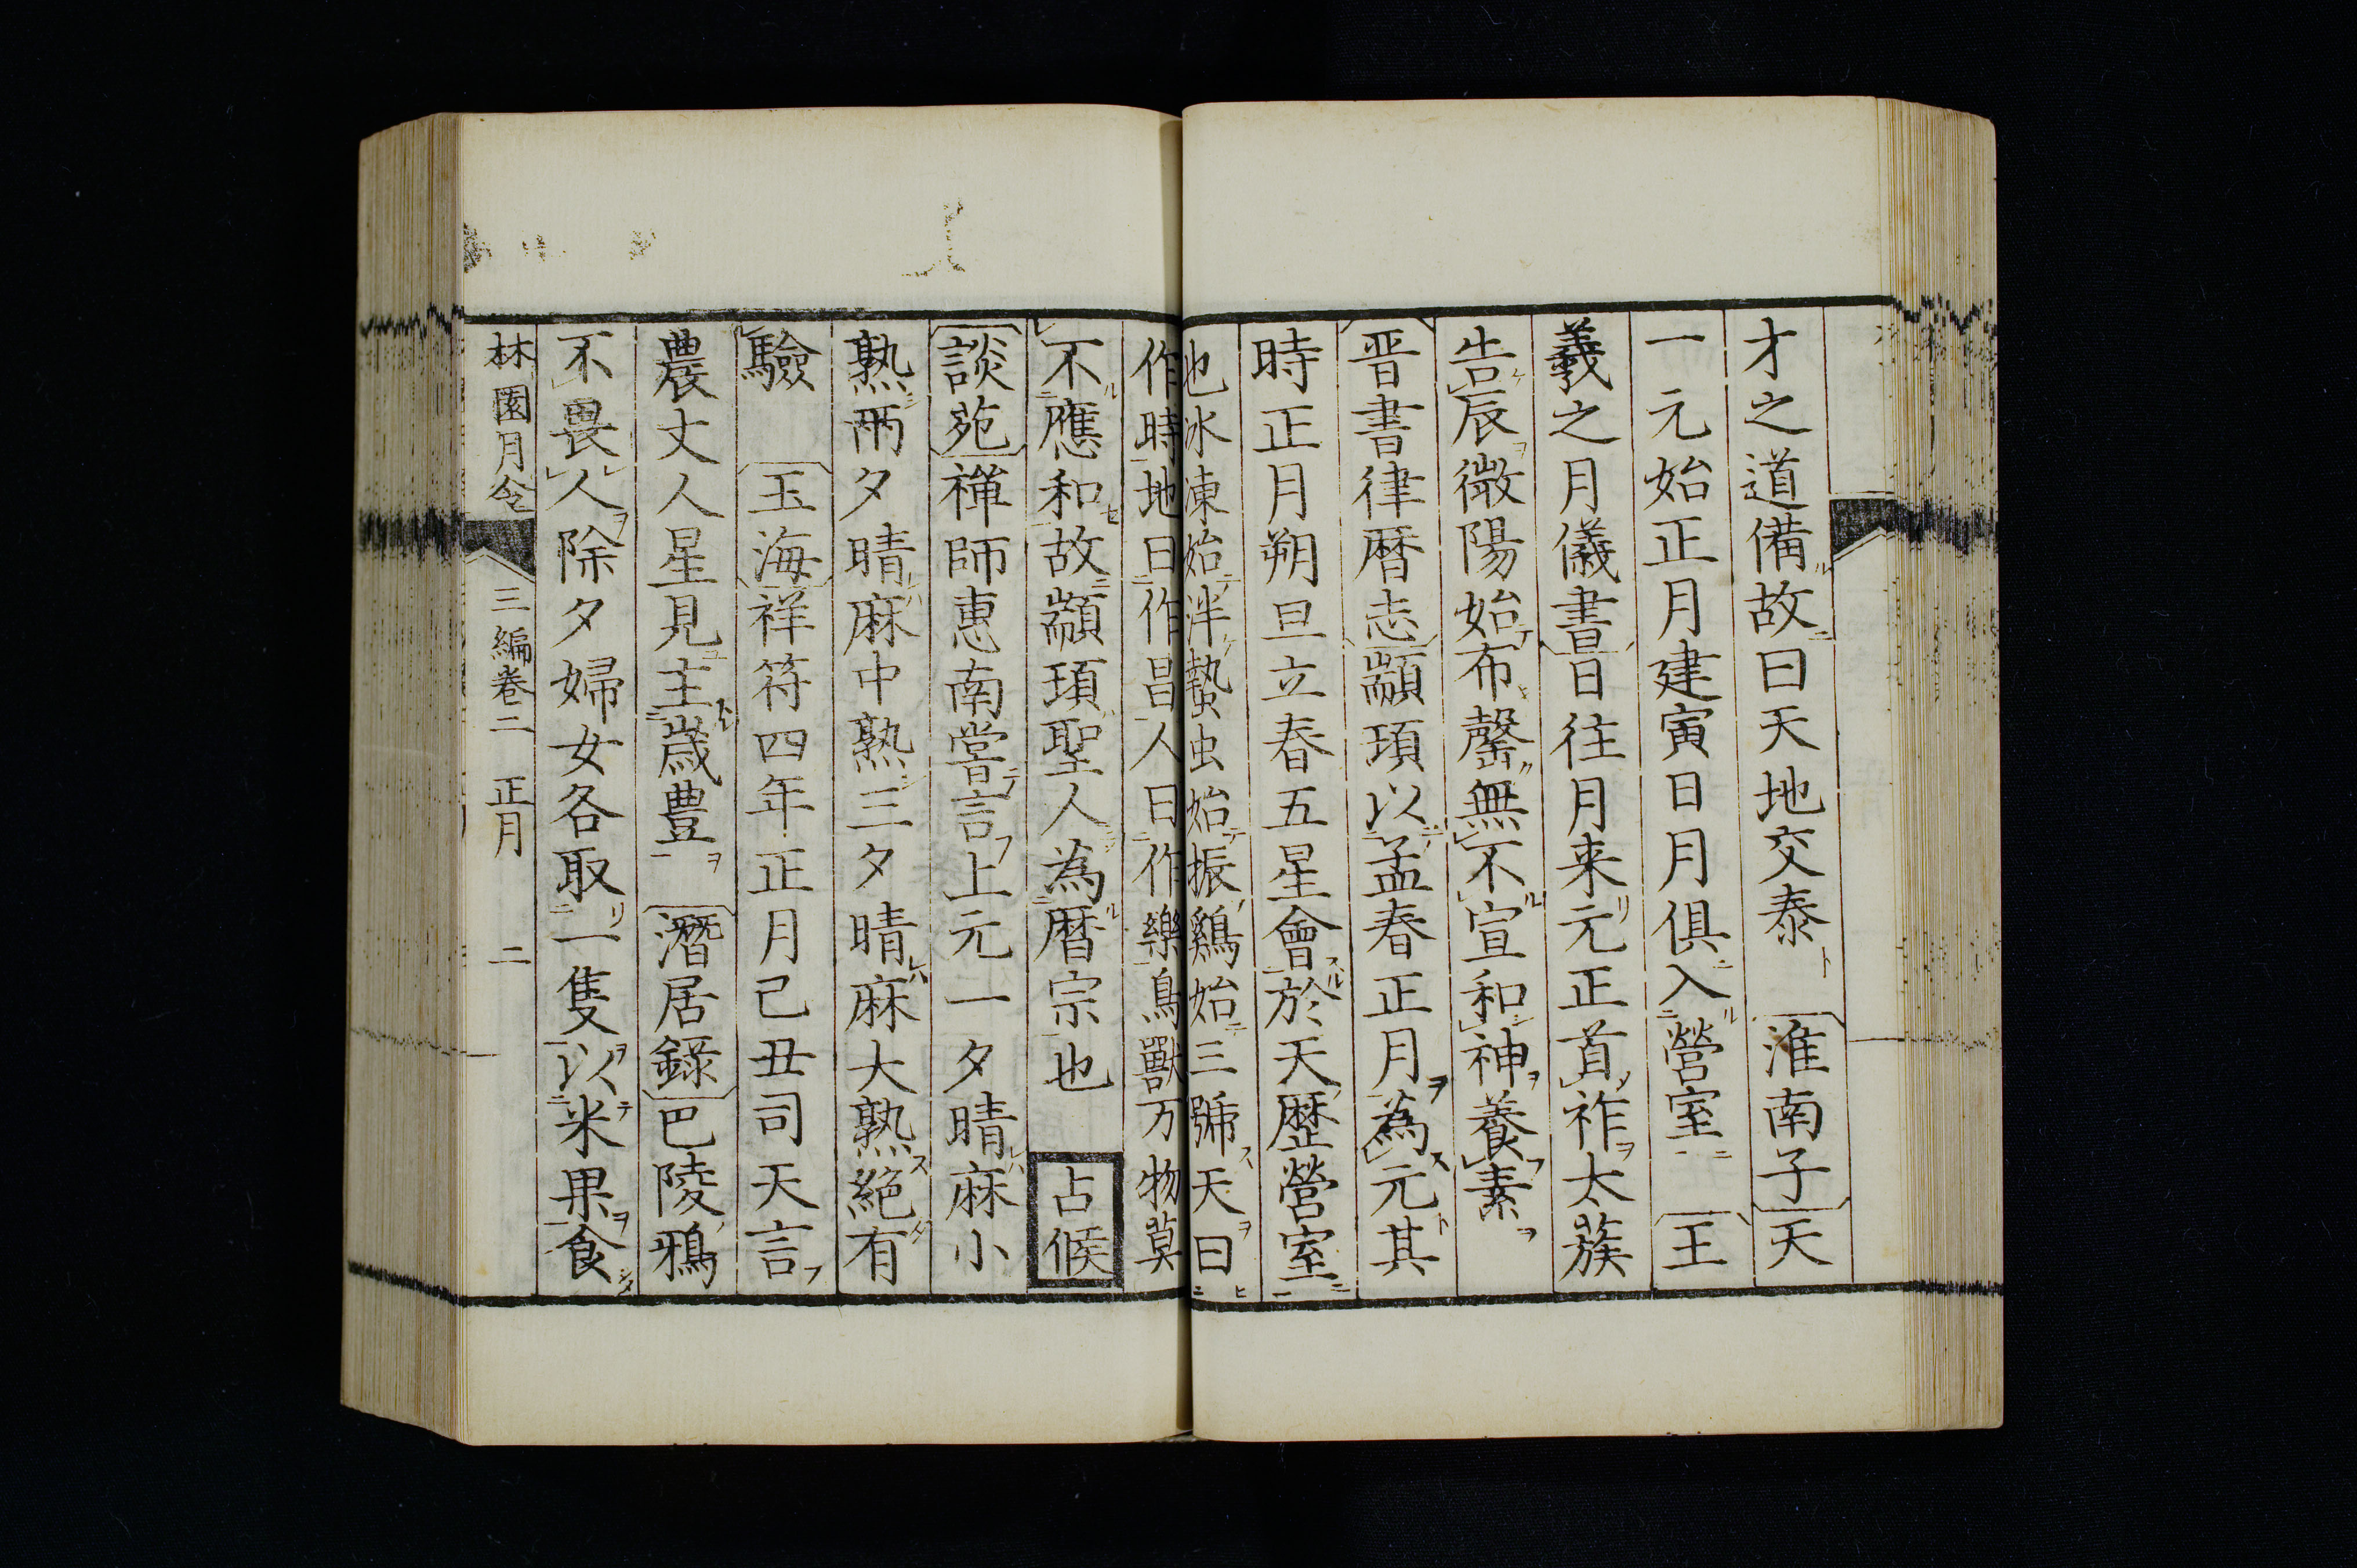 才之道備故曰天地交泰 淮南子天
一元始正月建寅日月俱入營室 王
羲之月儀書日往月来元正首祚太蔟
告辰微陽始布罄無不宣和神養素
晋書律暦志顓頊以孟春正月為元其
時正月朔旦立春五星會於天歷營室
也氷凍始泮蟄虫始振鷄始三號天曰
作時地曰作昌人曰作樂鳥獸万物莫
不應和故顓頊聖人為暦宗也 占候
談苑禅師惠南嘗言上元一夕晴麻小
熟兩夕晴麻中熟三夕晴麻大熟絕有
驗 玉海祥符四年正月己丑司天言
農丈人星見主歳豊 潛居錄巴陵鴉
不畏人除夕婦女各取一隻以米果食
林園月令 三編巻二 正月 二